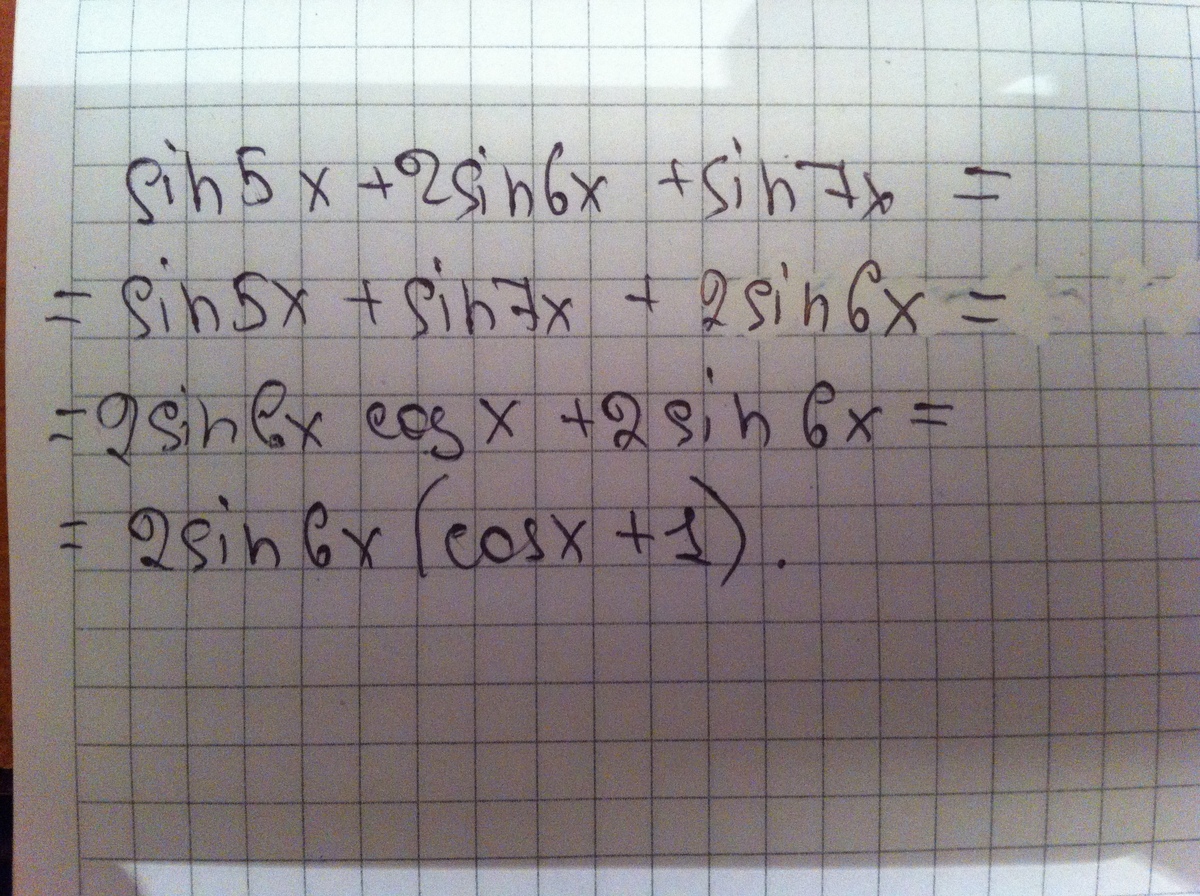 sin5x + 2sin6x + sin7x =
= sin5x + sin7x + 2sin6x =
= 2sin6x cosx + 2sin6x =
= 2sin6x (cosx + 1).